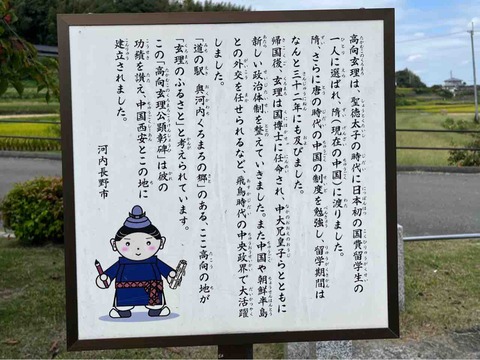 高向玄理は、聖徳太子の時代に日本初の国費留学生の
一人に選ばれ、隋（現在の中国）に渡りました。
隋、さらに唐の時代の中国の制度を勉強し、留学期間は
なんと三十二年にも及びました。
帰国後、玄理は国博士に任命され、中大兄皇子らとともに
新しい政治体制を整えていきました。また中国や朝鮮半島
との外交を任せられるなど、飛鳥時代の中央政界で大活躍
しました。
「道の駅 奥河内くろまろの郷」のある、ここ高向の地が
「玄理のふるさと」と考えられています。
この「高向玄理公顕彰碑」は彼の
功績を讃え、中国西安とこの地に
建立されました。
河内長野市